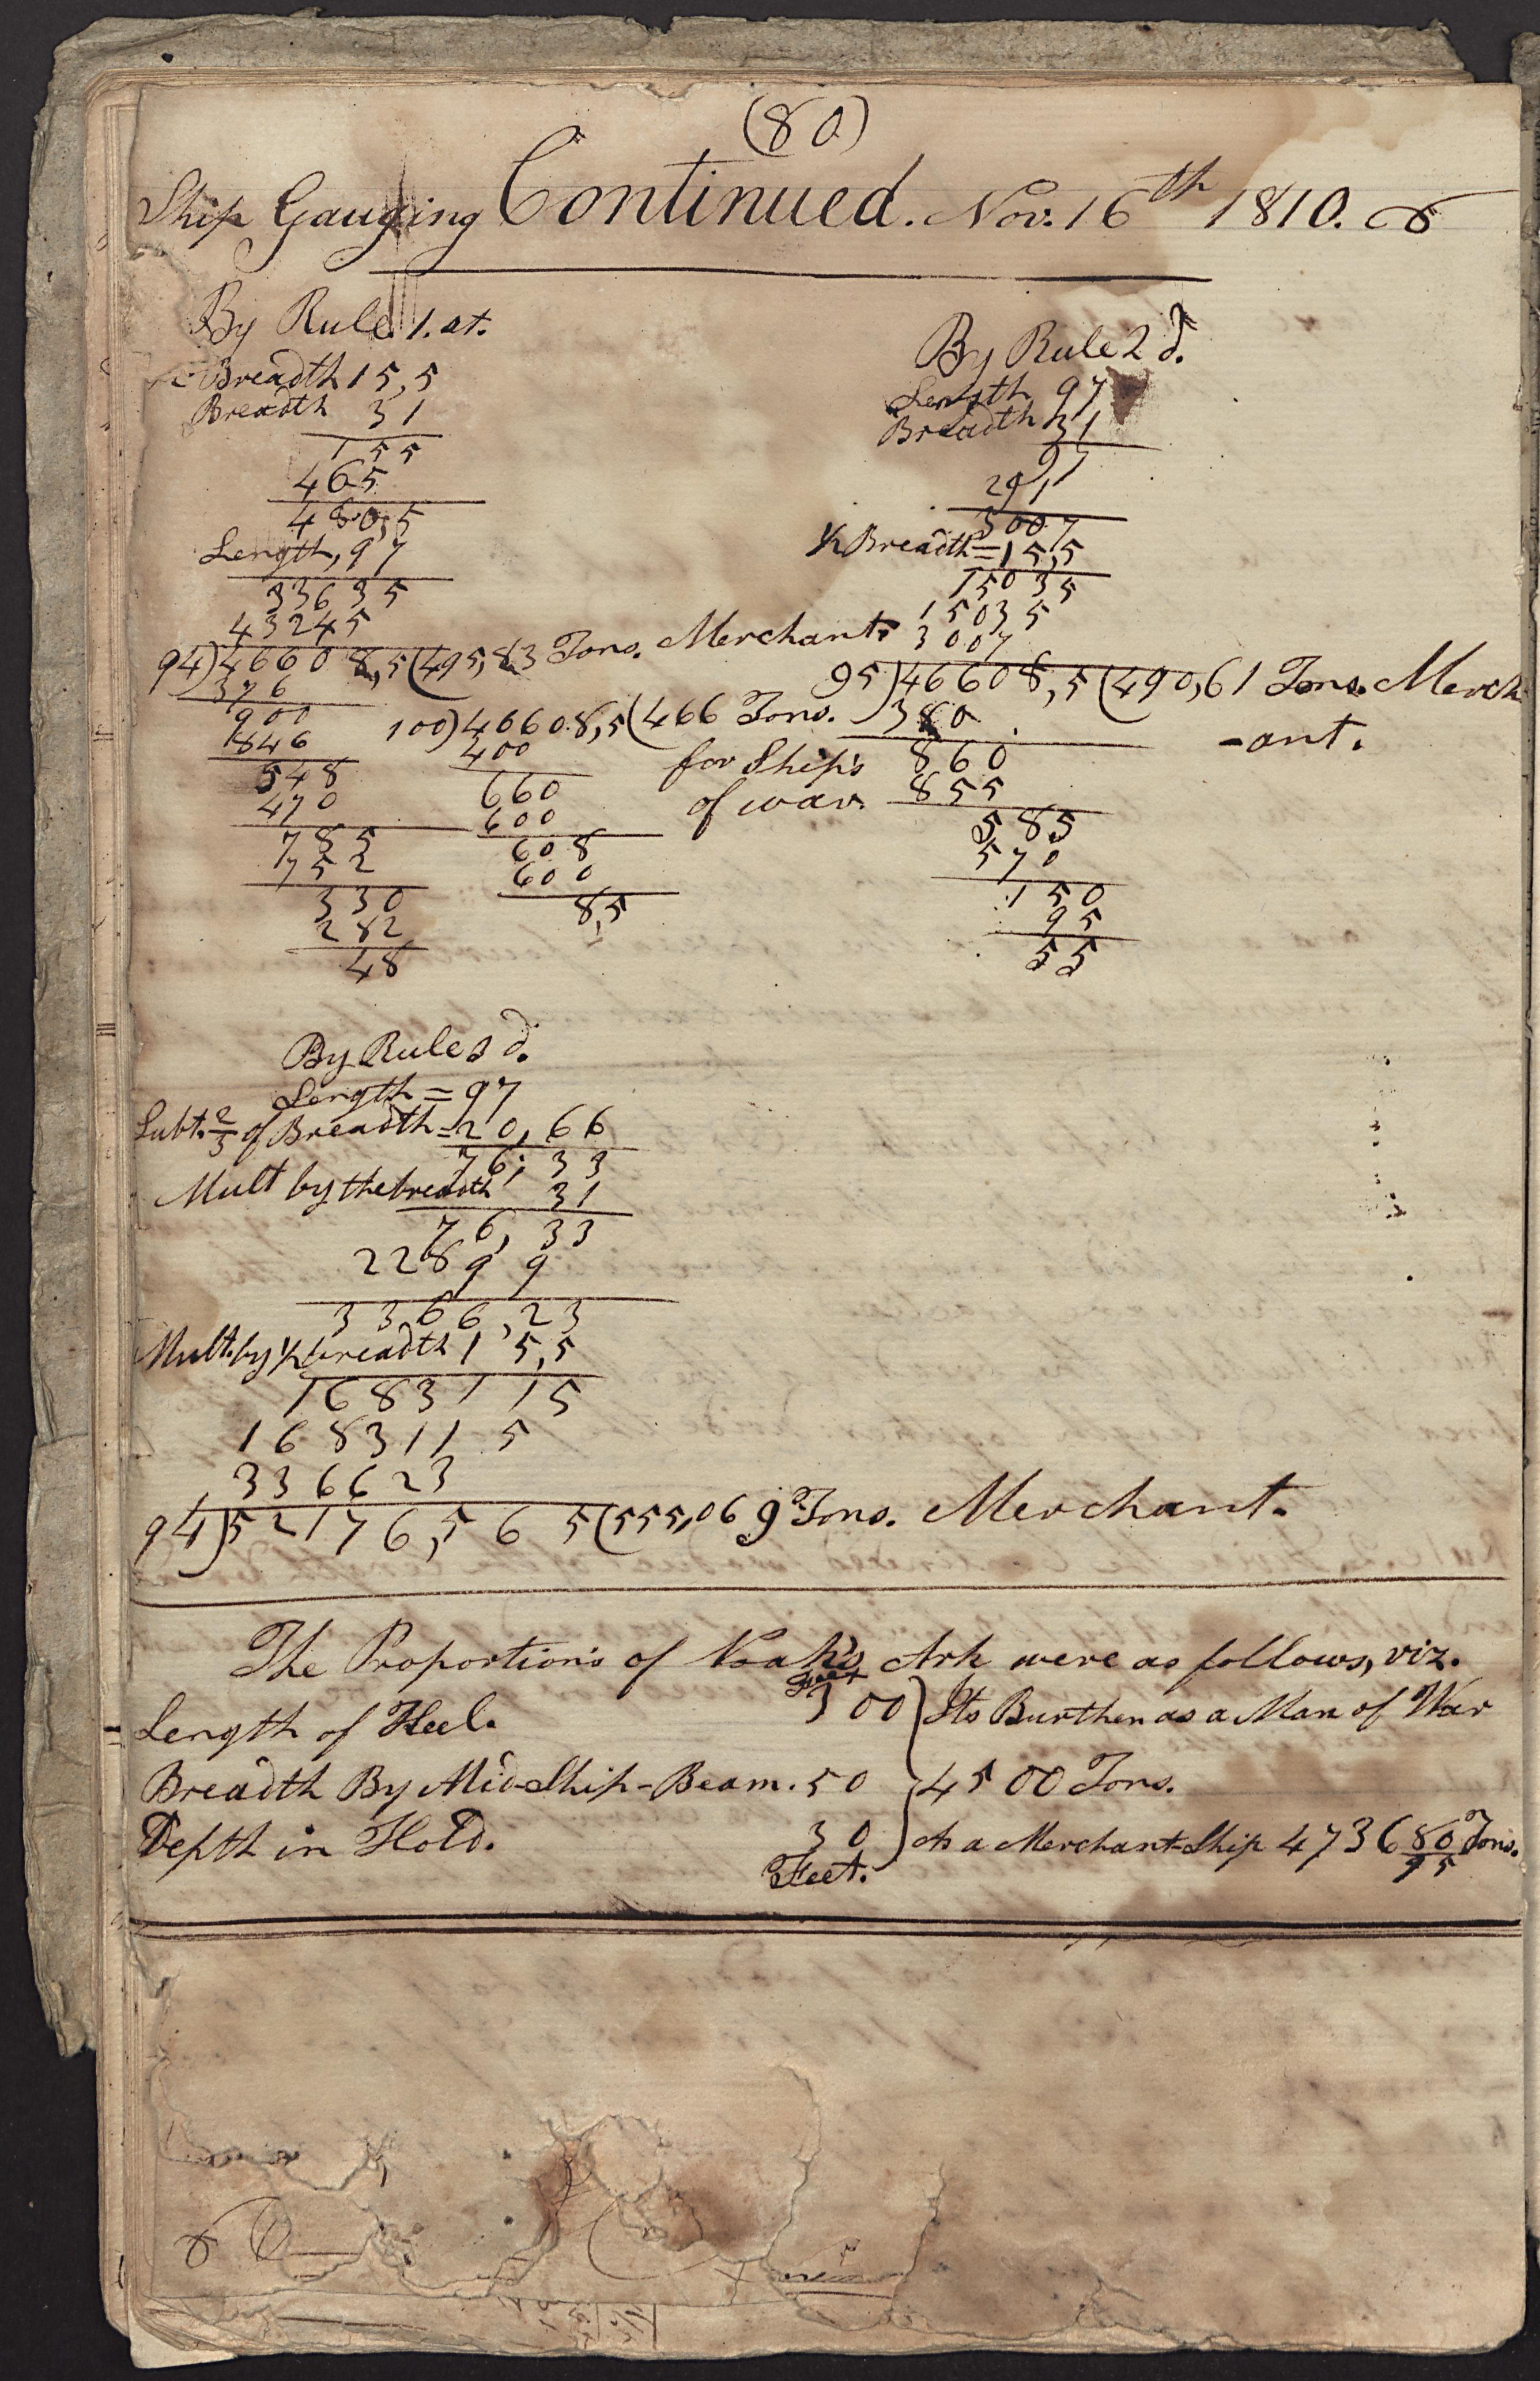 (80)
Ship Gauging Continued. Nov. 16th 1810.
By Rule 1.st.
Breadth 15,5
Breadth 31
155
465
480,5
Length, 97
33635
43245
94)46608,5(495,83 Tons. Merchant.
376
900
846
548
470
785
752
330
282
48
100)46608,5(466 Tons.
for Ship's
of war.
400
660
600
608
600
8,5
By Rule 2d.
Length 97
Breadth 31
97
291
3007
½ Breadth = 15,5
15035
15035
3007
95)46608,5(490,61 Tons. Merch
-ant.
380
860
855
585
570
150
95
55
By Rule 3d.
Length = 97
Subt. 2/3 of Breadth = 20,66
76,33
Mult by the breadth 31
76,33
22899
3366,23
Mult. by ½ breadth 15,5
1683115
1683115
336623
94)52176,565(555,069 Tons. Merchant.
The Proportions of Noah's Ark were as follows, viz.
Feet
Length of Keel. 300 } Its Burthen as a Man of War
Breadth By Mid-Ship-Beam. 50 } 4500 Tons.
Depth in Hold. 30 } As a Merchant-Ship 4736 80/95 Tons.
Feet.